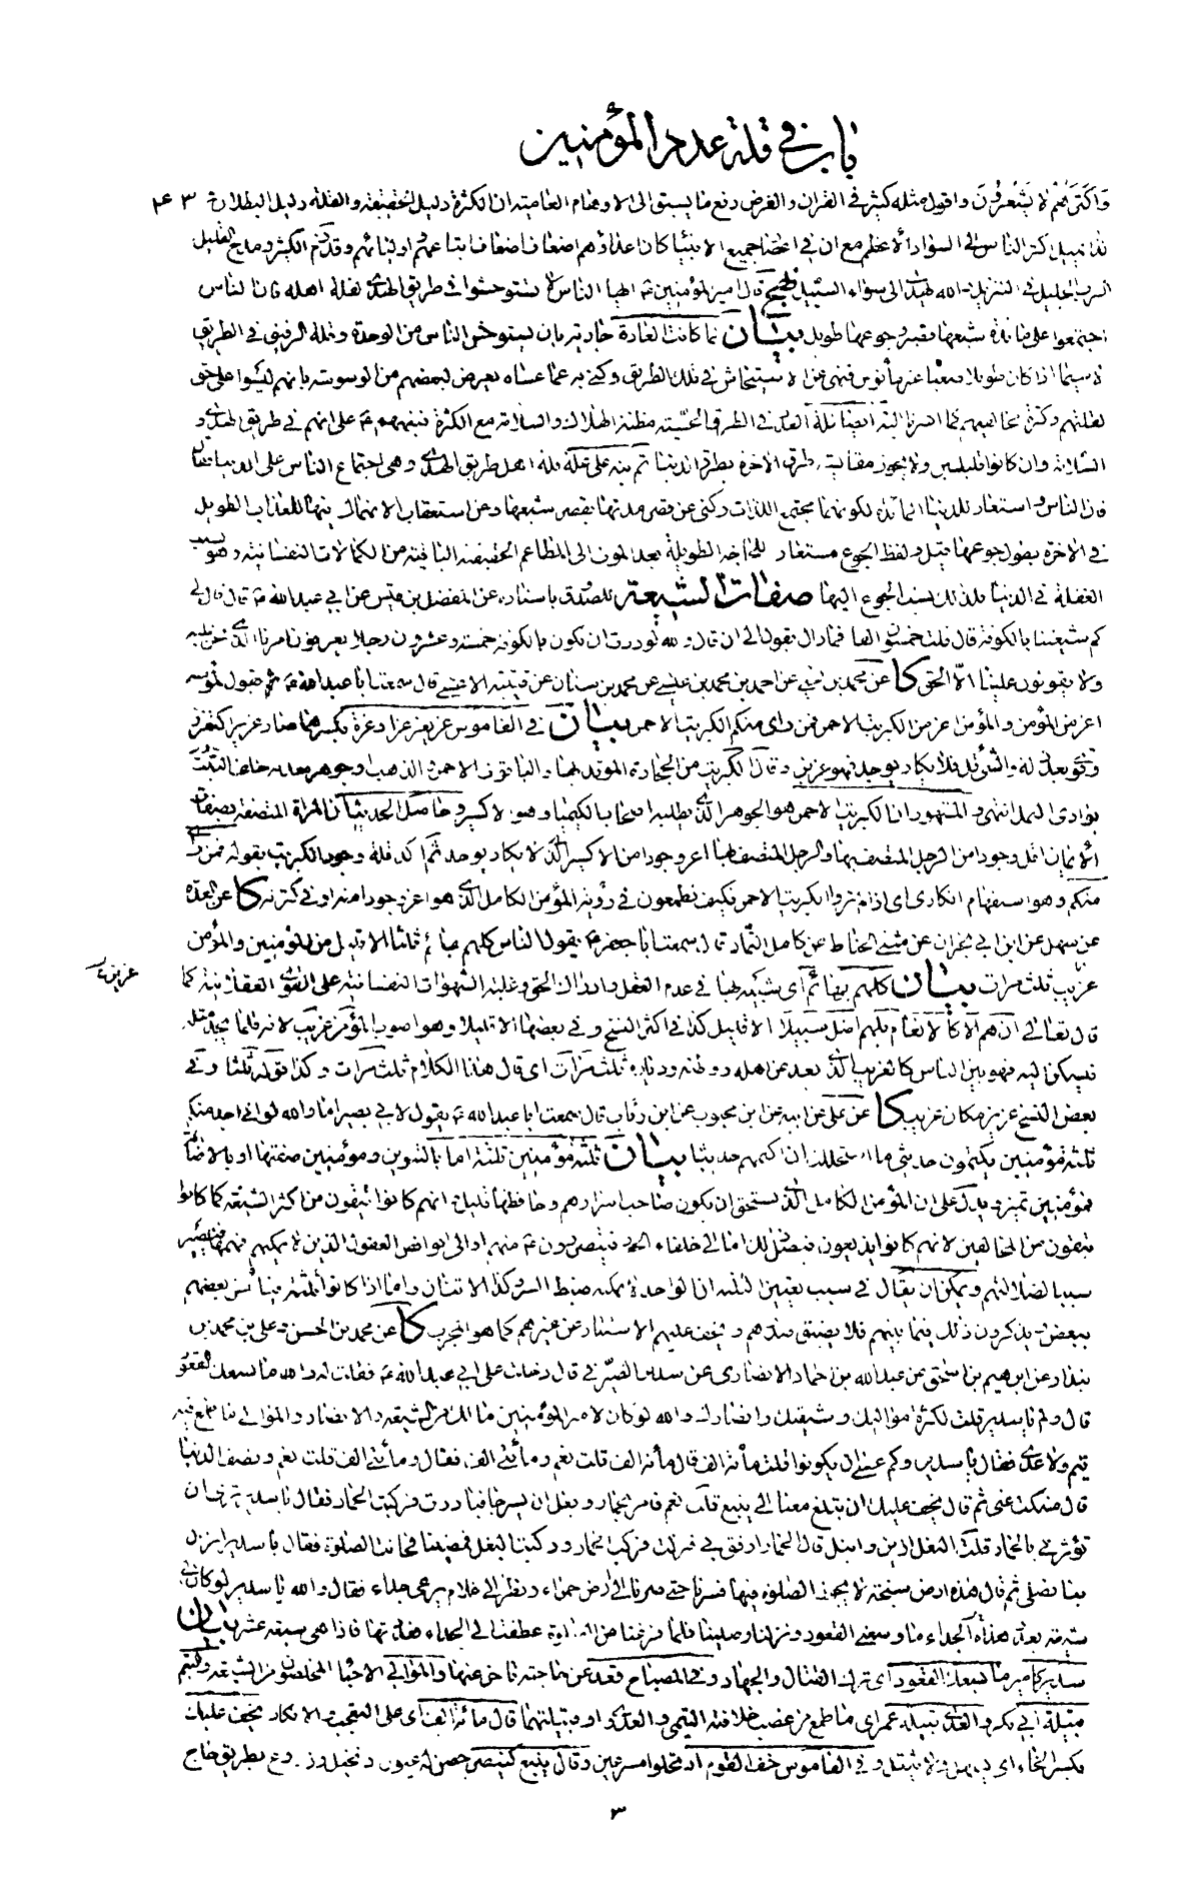 باب في قلة عدد المؤمنين
وَاَكْثَرُهُمْ لا يَشْعُرُونَ واقول مثله كثير في القران والغرض دفع ما يسبق الى الاوهام العامية ان الكثرة دليل الحقيقة والقلة دليل البطلان ٣
الناس الى السواد الاعظم مع ان في جميع الانبياء كان اعداؤهم اضعاف اضعاف اتباعهم واوليائهم وقد ذم الكثير ومدح القليل
الرب الجليل في التنزيل والله الى سواء السبيل نهج قال امير المؤمنين ع ايها الناس لا تستوحشوا في طريق الهدى لقلة اهله فان الناس
اجتمعوا على مائدة شبعها قصير وجوعها طويل بيان لما كانت العادة جارية بان يستوحش الناس من الوحدة وقلة الرفيق في الطريق
لا سيما اذا كان طويلا صعبا غير مأنوس فنهى عن الاستيحاش في تلك الطريق وكنى به عما عساه يعرض لبعضهم من الوسوسة بانهم ليسوا على حق
لقلتهم وكثرة مخالفيهم ايضا قلة العدد في الطرق الحسية مظنة الهلاك والسلامة مع الكثرة فنبههم ع على انهم في طريق الهدى و
السلامة وان كانوا قليلين ولا يجوز مقايسة طرق الاخرة بطرق الدنيا ثم نبه على علة قلة اهل طريق الهدى وهي اجتماع الناس على الدنيا فقال
فان الناس واستعار للدنيا المائدة لكونهما مجتمع اللذات وكنى عن قصر مدتها بقصر شبعها وعن استعقاب الانهماك فيها للعذاب الطويل
في الاخرة بطول جوعها وقيل ولفظ الجوع مستعار للحاجة الطويلة بعد الموت الى المطاعم الحقيقية الباقية من الكمالات النفسانية وهو بسبب
الغفلة في الدنيا فلذلك نسب الجوع اليها صفات الشيعة للصدوق باسناده عن المفضل بن قيس عن ابي عبد الله ع قال قال لي
كم شيعتنا بالكوفة قال قلت خمسون الفا فما زال يقول الى ان قال والله لوددت ان يكون بالكوفة خمسة وعشرون رجلا يعرفون امرنا الذي نحن عليه
ولا يقولون علينا الا الحق كا عن محمد بن يحيى عن احمد بن محمد بن عيسى عن محمد بن سنان عن قتيبة الاعشى قال سمعت ابا عبد الله ع يقول المؤمنة
اعز من المؤمن والمؤمن اعز من الكبريت الاحمر فمن رأى منكم الكبريت الاحمر بيان في القاموس عز يعز عزا وعزة بكسرهما صار عزيزا كتعزز
وقوى بعد ذلة والشئ قل فلا يكاد يوجد فهو عزيز وقال الكبريت من الحجارة الموقد بها والياقوت الاحمر والذهب او جوهر معدنه خلف التبت
بوادي النمل انتهى والمشهور ان الكبريت الاحمر هو الجوهر الذي يطلبه اصحاب الكيمياء وهو الاكسير وحاصل الحديث ان المرأة المتصفة بصفات
الايمان اقل وجودا من الرجل المتصف بها والرجل المتصف بها اعز وجودا من الاكسير الذي لا يكاد يوجد ثم اكد قلة وجود الكبريت بقوله فمن رأى
منكم وهو استفهام انكاري اي اذا لم تروا الكبريت الاحمر فكيف تطمعون في رؤية المؤمن الكامل الذي هو اعز وجودا منه او في كثرته كا عن العدة
عن سهل عن ابن ابي نجران عن مثنى الحناط عن كامل التمار قال سمعت ابا جعفر ع يقول الناس كلهم بهائم ثلثا الا قليل من المؤمنين والمؤمن
غريب ثلث مرات بيان كلهم بهائم اي شبيه بها في عدم العقل وادراك الحق وغلبة الشهوات النفسانية على القوى العقلانية كما
عزيز خ
قال تعالى ان هم الا كالانعام بل هم اضل سبيلا الا قليل كذا في اكثر النسخ وفي بعضها الا قليلا وهو اصوب المؤمن غريب لانه قلما يجد مثله
فيسكن اليه فهو بين الناس كالغريب الذي بعد عن اهله ووطنه ودياره ثلث مرات اي قال هذا الكلام ثلث مرات وكذا قوله ثلثا وفي
بعض النسخ عزيز مكان غريب كا عن علي عن ابيه عن ابن محبوب عن ابن رئاب قال سمعت ابا عبد الله ع يقول لابي بصير اما والله لو اني اجد منكم
ثلثة مؤمنين يكتمون حديثي ما استحللت ان اكتمهم حديثا بيان ثلثة مؤمنين ثلثة اما بالتنوين ومؤمنين صفتها او بالاضافة
فمؤمنين تميز ويدل على ان المؤمن الكامل الذي يستحق ان يكون صاحب اسرارهم وحافظها قليل وانهم كانوا يتقون من اكثر الشيعة كما كانوا
يتقون من المخالفين لانهم كانوا يذيعون فيصل ذلك اما الى خلفاء الجور فيتضررون ع منهم او الى نواقص العقول الذين لا يمكنهم فهمها فتصير
سببا لضلالتهم ويمكن ان يقال في سبب تعيين الثلثة ان الواحد لا يمكنه ضبط السر وكذا الاثنان واما اذا كانوا ثلثة فيأنس بعضهم
ببعض ويذكرون ذلك فيما بينهم فلا يضيق صدرهم ويخف عليهم الاستتار عن غيرهم كما هو المجرب كا عن محمد بن الحسن وعلي بن محمد بن
بندار عن ابرهيم بن اسحق عن عبد الله بن حماد الانصاري عن سدير الصيرفي قال دخلت على ابي عبد الله ع فقلت له والله ما يسعك القعود
قال ولم يا سدير قلت لكثرة مواليك وشيعتك وانصارك والله لو كان لامير المؤمنين ما لك من الشيعة والانصار والموالي ما طمع فيه
تيم ولا عدي فقال يا سدير وكم عسى ان يكونوا قلت مأة الف قال مأة الف قلت نعم ومأتي الف فقال ومأتي الف قلت نعم ونصف الدنيا
قال فسكت عني ثم قال يخف عليك ان تبلغ معنا الى ينبع قلت نعم فامر بحمار وبغل ان يسرجا فبادرت فركبت الحمار فقال يا سدير ترى ان
تؤثرني بالحمار قلت البغل ازين وانبل قال الحمار ارفق بي فنزلت فركب الحمار وركبت البغل فمضينا فحانت الصلوة فقال يا سدير انزل
بنا نصلي ثم قال هذه ارض سبخة لا يجوز الصلوة فيها فسرنا حتى صرنا الى ارض حمراء ونظر الى غلام يرعى جداء فقال والله يا سدير لو كان لي
شيعة بعدد هذه الجداء ما وسعني القعود ونزلنا وصلينا فلما فرغنا من الصلوة عطفت الى الجداء فعددتها فاذا هي سبعة عشر بيان
سدير كامير ما يسعك القعود اي ترك القتال والجهاد وفي المصباح قعد عن حاجته تاخر عنها والموالي الاحباء المخلصون من الشيعة وتيم
قبيلة ابي بكر والعدي قبيلة عمر اي ما طمع في غصب خلافته التيمي والعدوي او قبيلتهما قال مائة الف اي على التعجب والانكار يخف عليك
بكسر الخاء اي يسهل ولا يثقل وفي القاموس خف القوم ارتحلوا مسرعين وقال ينبع كينصر حصن له عيون ونخيل وزروع بطريق حاج
٣